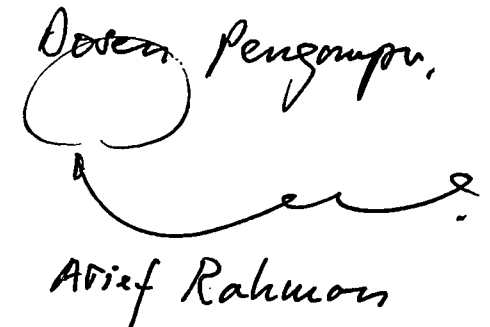 Dosen Pengampu,
Arief Rahman